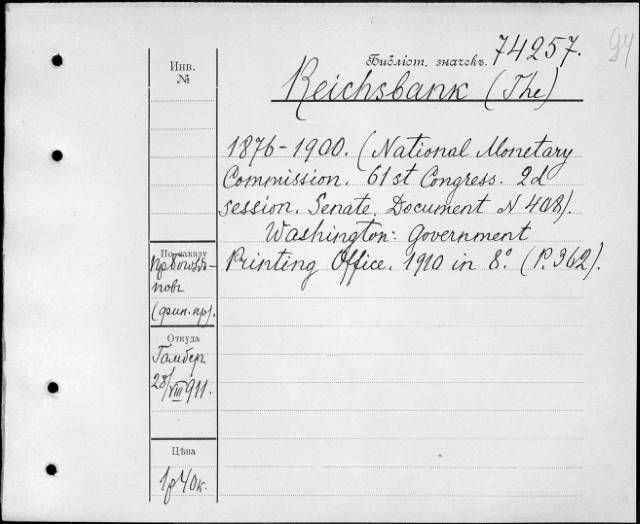 94
Библіот. значекъ. 74257.
Инв.
№
Reichsbank (The)
1876-1900. (National Monetary
Commission. 61st Congress. 2d
session. Senate. Document N 408).
Washington: Government
Printing Office. 1910 in 8°. (P. 362).
По заказу
(фин. пр).
Откуда
Гамберг
28/VIII 911.
Цѣна
1р 40к.